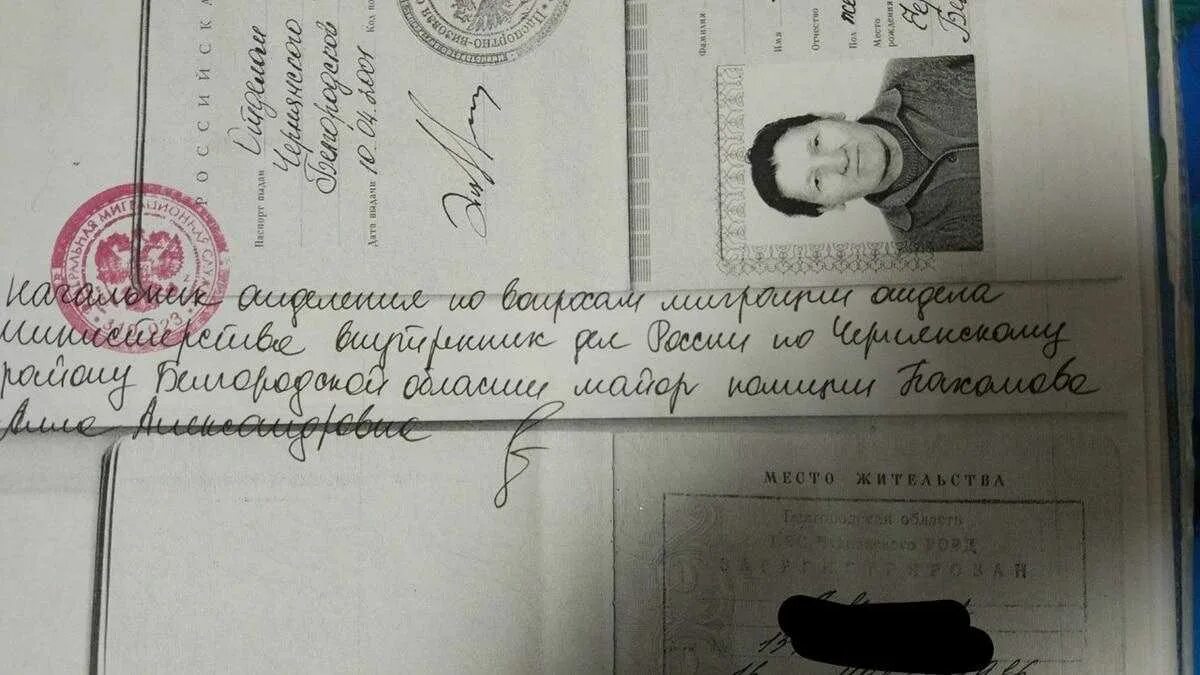 РОССИЙСКА
Паспорт выдан
Отделом
Чернянского
Белгородской
Дата выдачи 10.04.2001
Код
ПАСПОРТНО-ВИЗОВАЯ
Фамилия
Имя
Отчество
Пол же
Место рождения
Бе
ФЕДЕРАЛЬНАЯ МИГРАЦИОННАЯ СЛУ
Начальник отделения по вопросам миграции отдела
министерства внутренних дел России по Чернянскому
району Белгородской области майор полиции Пахомова
Анна Александровна
МЕСТО ЖИТЕЛЬСТВА
Белгородская область
РОВД
ЗАРЕГИСТРИРОВАН